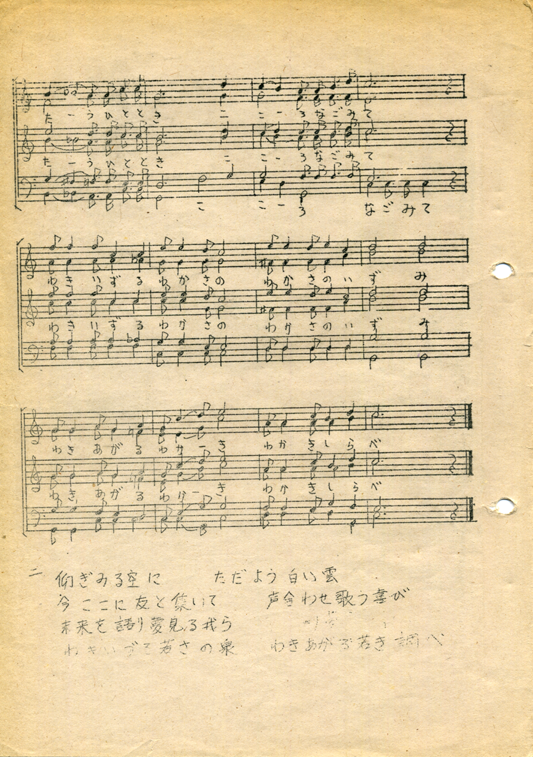 たーうひととき　こころなごみて
たーうひととき　こころなごみて
こころ　なごみて
わきいずる　わかさの　わかさのいずみ
わきいずる　わかさの　わかさのいずみ
わきあがる　わかき　わかきしらべ
わきあがる　わかき　わかきしらべ
二　仰ぎみる空に　ただよう白い雲
今ここに友と集いて　声合わせ歌う喜び
未来を語り夢見る我ら
わきいづる若さの泉　わきあがる若き調べ